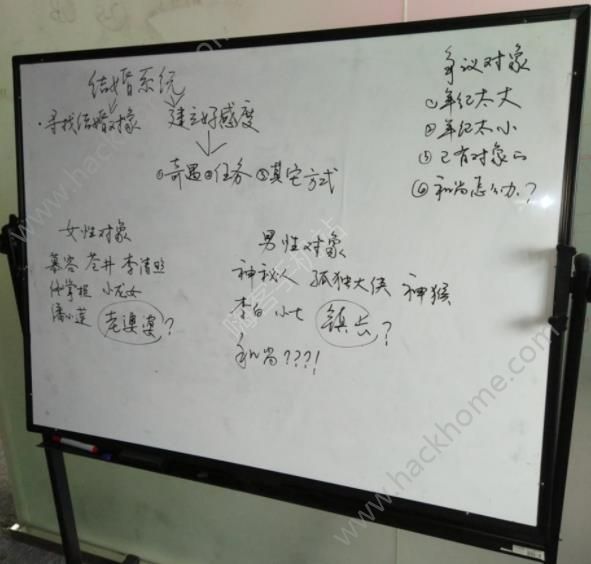 结婚系统
·寻找结婚对象 建立好感度
①奇遇②任务③其它方式
争议对象
①年纪太大
②年纪太小
③已有对象的
④和尚怎么办?
女性对象
慕容 苍井 李清照
仲掌柜 小龙女
潘小莲 老婆婆?
男性对象
神秘人 孤独大侠 神猴
李白 小七 镇长?
和尚???!
www.hackhome.com
网客手机站